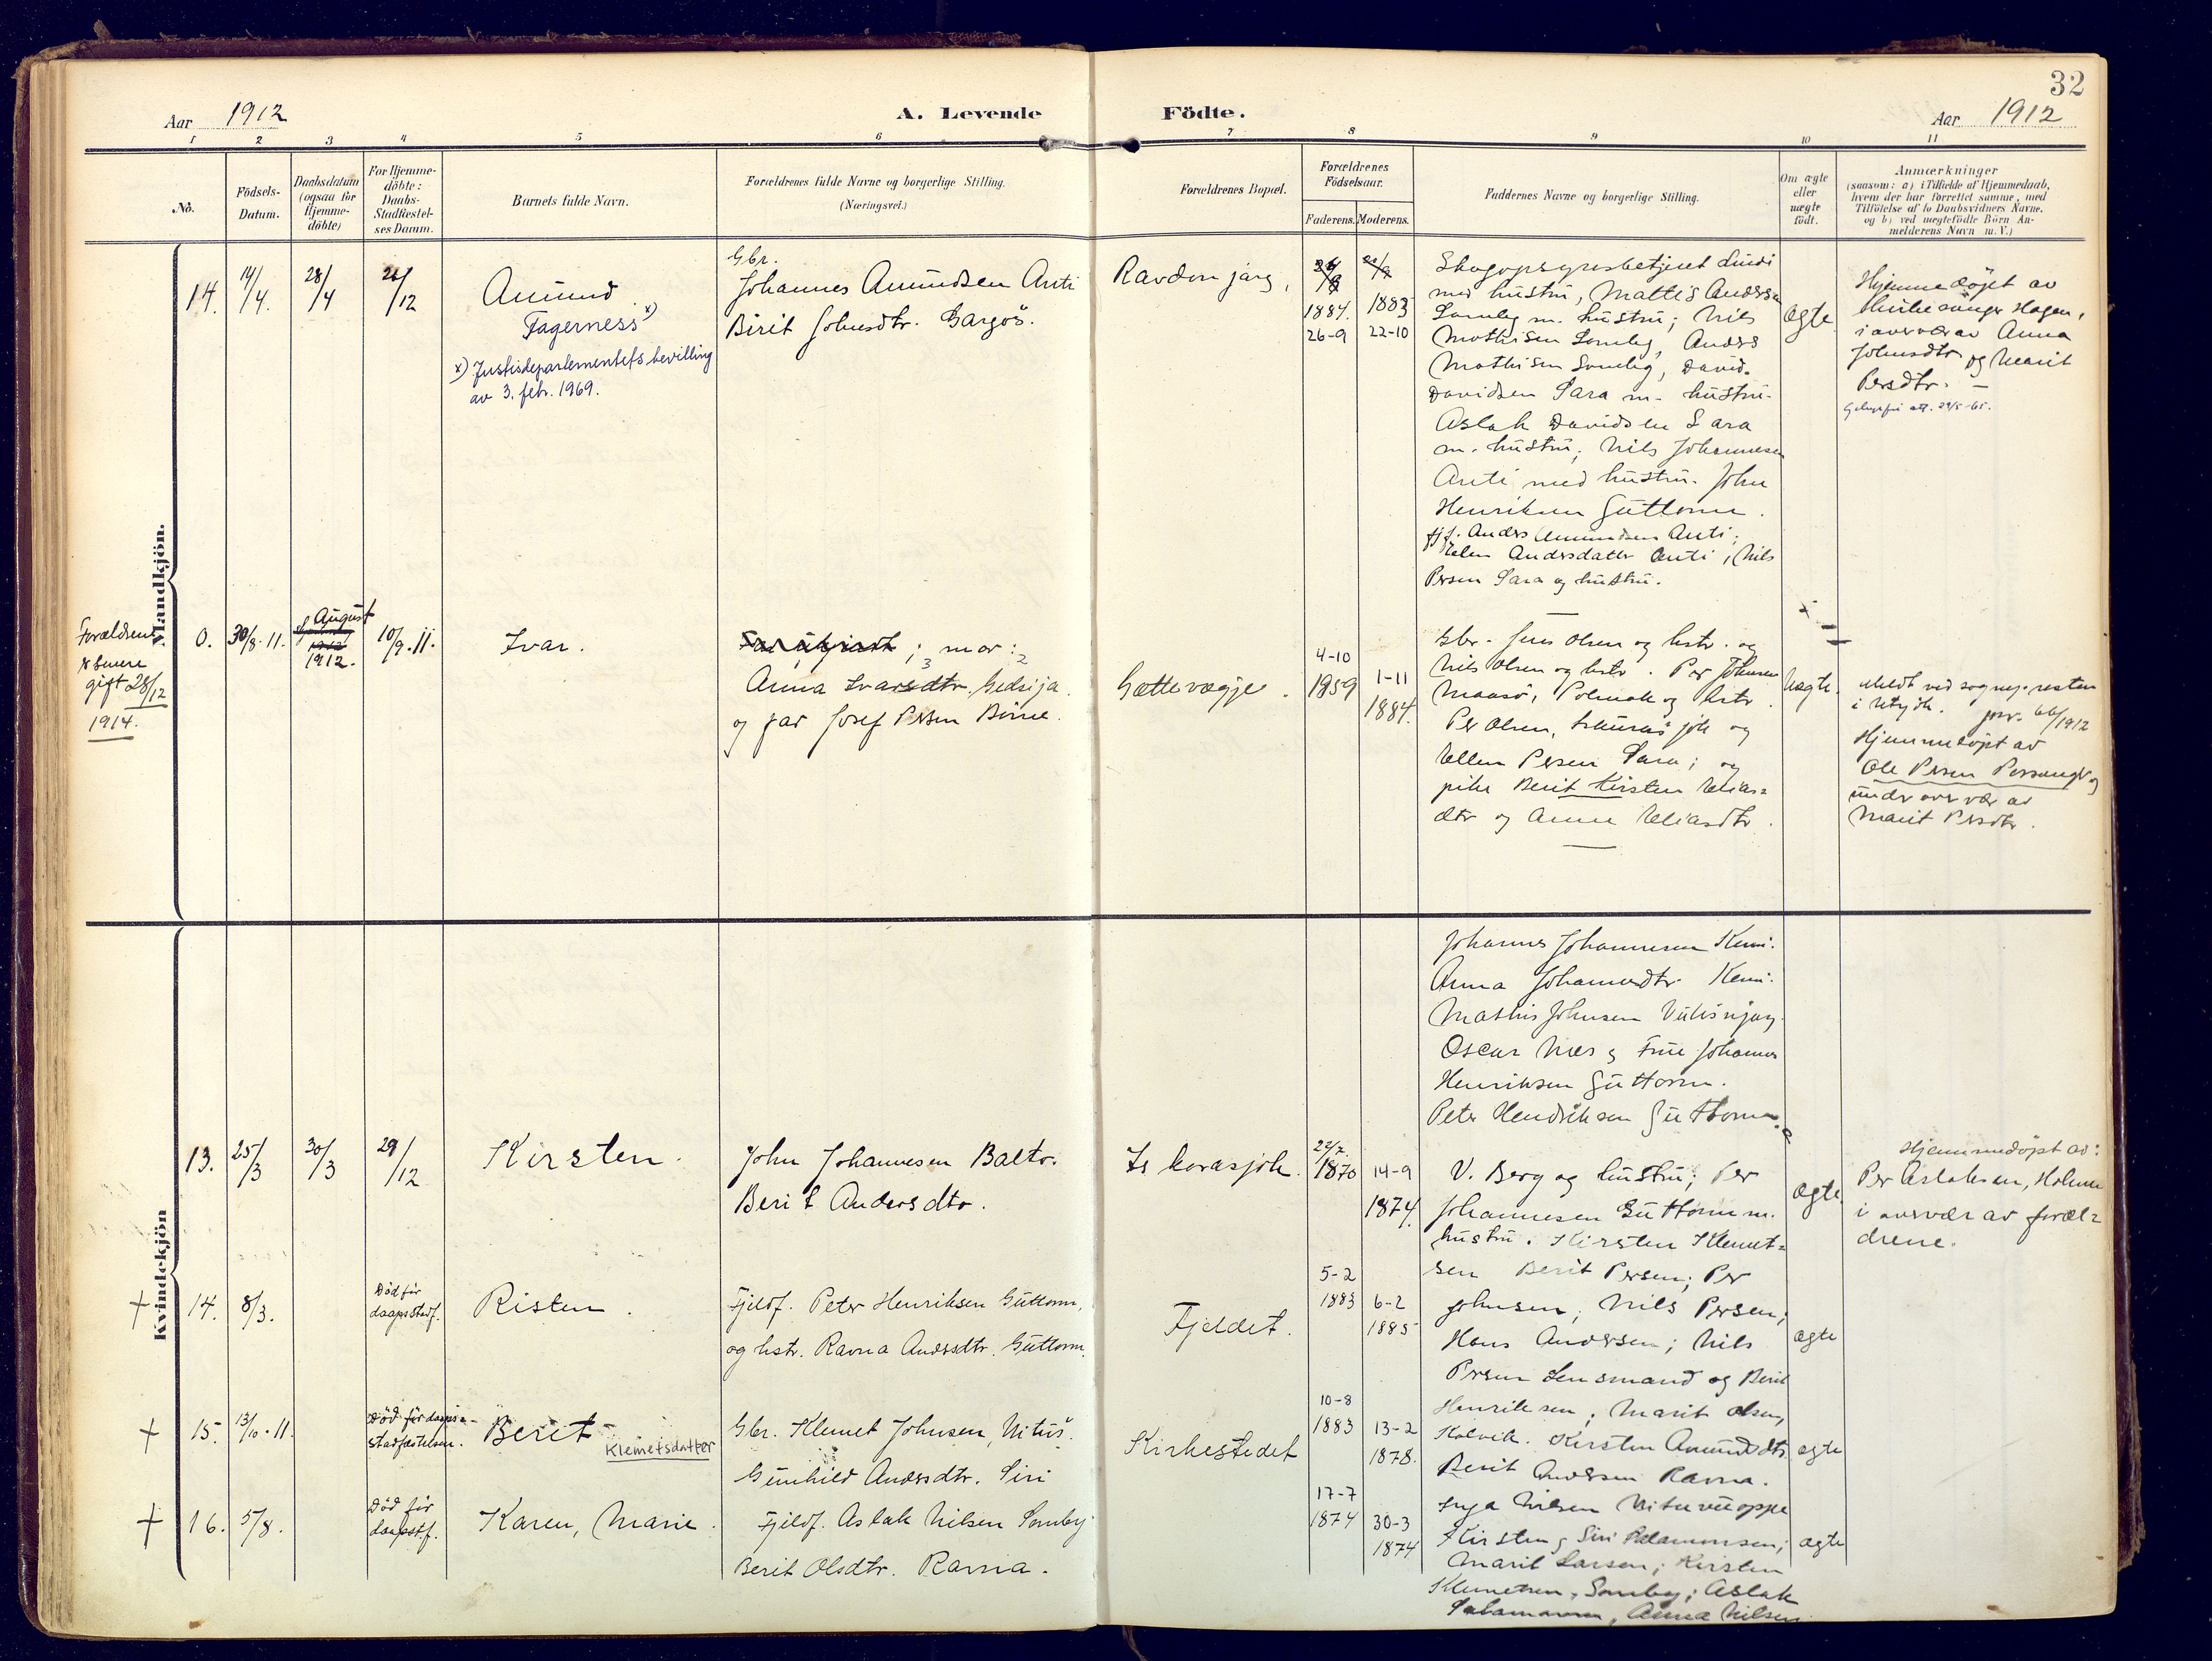 32
Aar 1912
A. Levende
Födte.
Aar 1912
1 2 3 4 5 6 7 8 9 10 11
No.
Födsels-
Datum.
Daabsdatum
(ogsaa for
Hjemme-
döbte)
For Hjemme-
döbte:
Daabs-
Stadfæstel-
ses Datum.
Barnets fulde Navn.
Forældrenes fulde Navne og borgerlige Stilling.
(Næringsvei.)
Forældrenes Bopæl.
Forældrenes
Födselsaar.
Faderens. Moderens.
Faddernes Navne og borgerlige Stilling.
Om ægte
eller
uægte
födt.
Anmærkninger
(saasom: a) i Tilfælde af Hjemmedaab,
hvem der har forrettet samme, med
Tilföielse af to Daabsvidners Navne,
og b) ved uægtefödte Börn An-
melderens Navn m. V.)
Mandkjön.
14. 14/4. 28/4 /12
Amund
Fagerness x)
x) Justisdepartementets bevilling
av 3. febr. 1969.
Gbr.
Johannes Amundsen Anti
Birit Johnsdtr. Gargos.
Ravdonjarg,
1884. 1883
26-9 22-10
Skogopsynsbetjent
med hustru, Mattis Andersen
Somby m. hustru; Nils
Mathisen Somby, Anders
Mathisen Somby, David
Davidsen Sara m. hustru.
Aslak Davidsen Sara
m. hustru; Nils Johannesen
Anti med hustru. John
Henriksen Guttorm.
Fjf. Anders Amundsen Anti;
Elen Andersdatter Anti, Nils
Persen Sara og hustru.
ægte
Hjemmedøpt av
Hagen,
i overvær av Anna
Johnsdtr og Marit
Persdtr. —
29/5-65.
Forældrene
senere
gift 28/12
1914.
0. 30/8.11. August
1912
1912. 10/9.11.
Ivar.
; mor:
Anna Ivarsdtr.
og far Josef Persen
Gættevægje.
4-10
1859 1-11
1884.
Gbr. Jens Olsen og hstr. og
Nils Olsen og hstr. Per Johnsen
Maasø, Polmak og hstr.
Per Olsen, og
Ellen Persen Sara; og
pike Berit Kirsten Elias=
dtr og Anne Eliasdtr.
uægte.
Meldt ved sognepresten
i Utsjok. jnr. 66/1912
Hjemmedøpt av
Ole Persen Porsanger og
under overvær av
Marit Persdtr.
Kvindekjön
Johannes Johannesen Kemi.
Anna Johannesdtr. Kemi.
Mathis Johnsen
Oscar Næs og Frue Johannes
Henriksen Guttorm.
Peter Hendriksen Guttorm.
13. 25/3 30/3 29/12
Kirsten.
John Johannesen Balto.
Berit Andersdtr.
Karasjok.
22/7.
1870 14-9
1874.
V. Berg og hustru; Per
Johannesen Guttorm m.
hustru. Kirsten Klemet=
sen Berit Persen; Per
Johnsen; Nils Persen;
Hans Andersen; Nils
Persen Lensmand og Berit
Henriksen; Marit Olsen,
Holvik. Kirsten Amundsdtr.
Berit Andersen Ravna.
Inga Nilsen
Kirsten og Siri Salamonsen;
Marit Larsen; Kirsten
Klemetsen, Somby; Aslak
Salamonsen, Anna Nilsen
ægte
Hjemmedøpt av:
Per Aslaksen, Holmen
i overvær av foræl=
drene.
+ 14. 8/3. Død før
daapsstadf.
Risten.
Fjeldf. Peter Henriksen Guttorm,
og hstr. Ravna Andersdtr. Guttorm.
Fjeldet.
5-2
1883 6-2
1885
ægte
+ 15. 13/10.11. Død før daaps=
stadfæstelsen.
Berit
Klemetsdatter
Gbr. Klemet Johnsen, Nitus.
Gunhild Andersdtr. Siri
Kirkestedet
10-8
1883 13-2
1878.
ægte
+ 16. 5/8. Død før
daapsstf.
Karen, Marie.
Fjeldf. Aslak Nilsen Somby
Berit Olsdtr. Ravna.
17-7
1874 30-3
1874
ægte